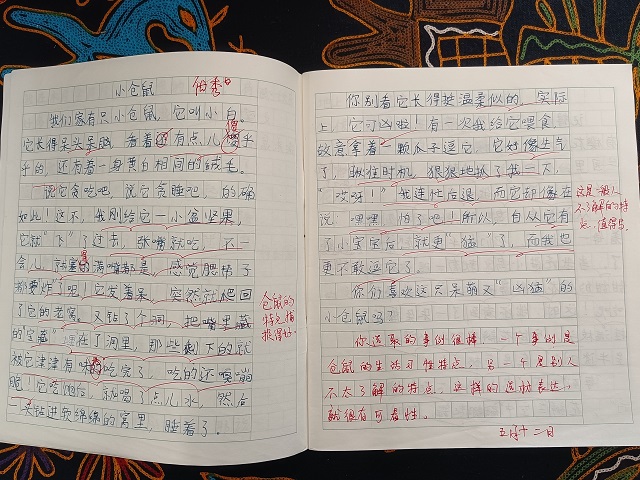 小仓鼠 佰秀
我们家有只小仓鼠，它叫小白。
它长得呆头呆脑，看着还有点儿傻乎
乎的，还有着一身黄白相间的绒毛。
说它贪吃吧，说它贪睡吧，的确
如此！这不，我刚给它一小盆坚果，
它就“飞”了过去，张嘴就吃，不一
会儿，就塞的满嘴都是，感觉腮帮子
都要炸了呢！它发着呆，突然就爬回
了它的老窝，又钻了个洞，把嘴里藏
的“宝藏”埋在了洞里，那些剩下的就
被它津津有味的吃完了，吃的还嘎嘣
脆！它吃饱后，就喝了点儿水，然后
一头钻进软绵绵的窝里，睡着了。
仓鼠的
特点描
述得好。
你别看它长得挺温柔似的，实际
上，它可凶啦！有一次我给它喂食，
故意拿着一颗瓜子逗它，它好像生气
了，瞅准时机，狠狠地抓了我一下，
“哎呀！”我连忙后退，而它却像在
说：嘿嘿，怕了吧！所以，自从它有
了小宝宝后，就更“猫”了，而我也
更不敢逗它了。
你们喜欢这只呆萌又“凶猫”的
小仓鼠吗？
这是一般人
不了解的特
点，值得写
你选取的事例很棒，一个事例是
仓鼠的生活习性特点，另一个是别人
不太了解的特点，这样的选材表达，
就很有可看性。
五月十二日